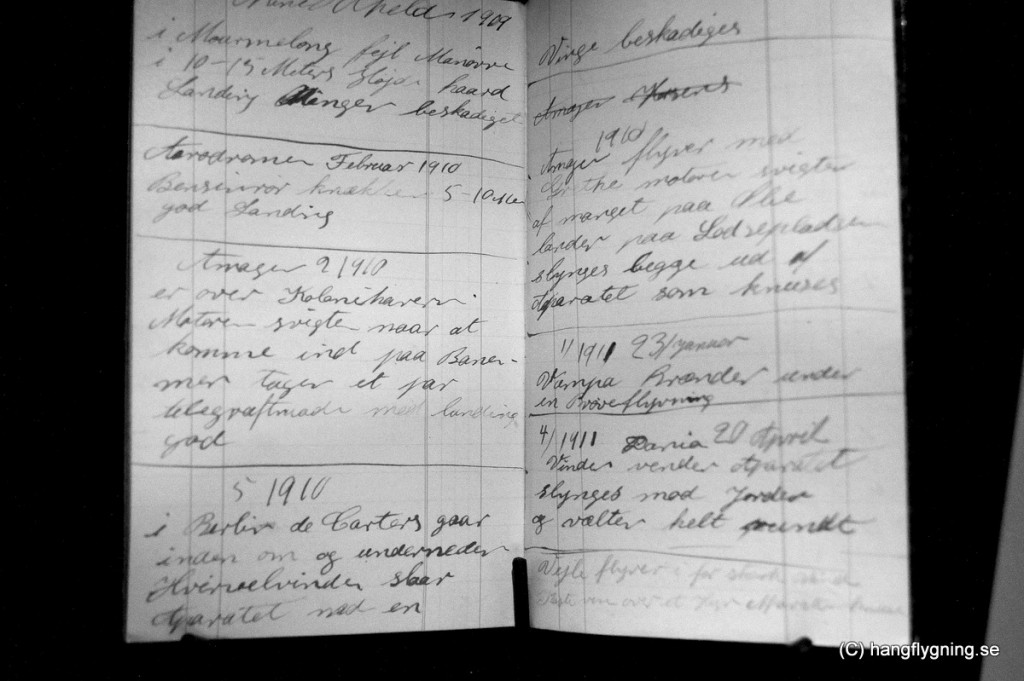 1909
i Mourmelong fejl Manøvre
i 10-15 Meters Højde haard
Landing Vinger beskadiget
Aerodromen Februar 1910
Bensinrør knækker 5-10 Mtr
god Landing
Amager 2 1910
er over Kolonihaven
Motoren svigter naar at
komme ind paa Baner-
mer tager et par
telegrafmade med landing
god
5 1910
i Berlin de Carters gaar
inden om og underneden
Hvirvelvinden slaar
Aparatet ned en
Vinge beskadiges
Amager
1910
Amager flyver med
Grethe motoren svigter
af manget paa Olie
lander paa Lodsepladsen
slynges begge ud af
Aparatet som knuses
1/1911 23/januar
Vampa Brænder under
en Prøveflyvning
4/1911 Dania 20 April
Vinden vender Aparatet
slynges mod Jorden
og vælter helt rundt
Vejle flyver i for stærk
over et
(C) hangflygning.se